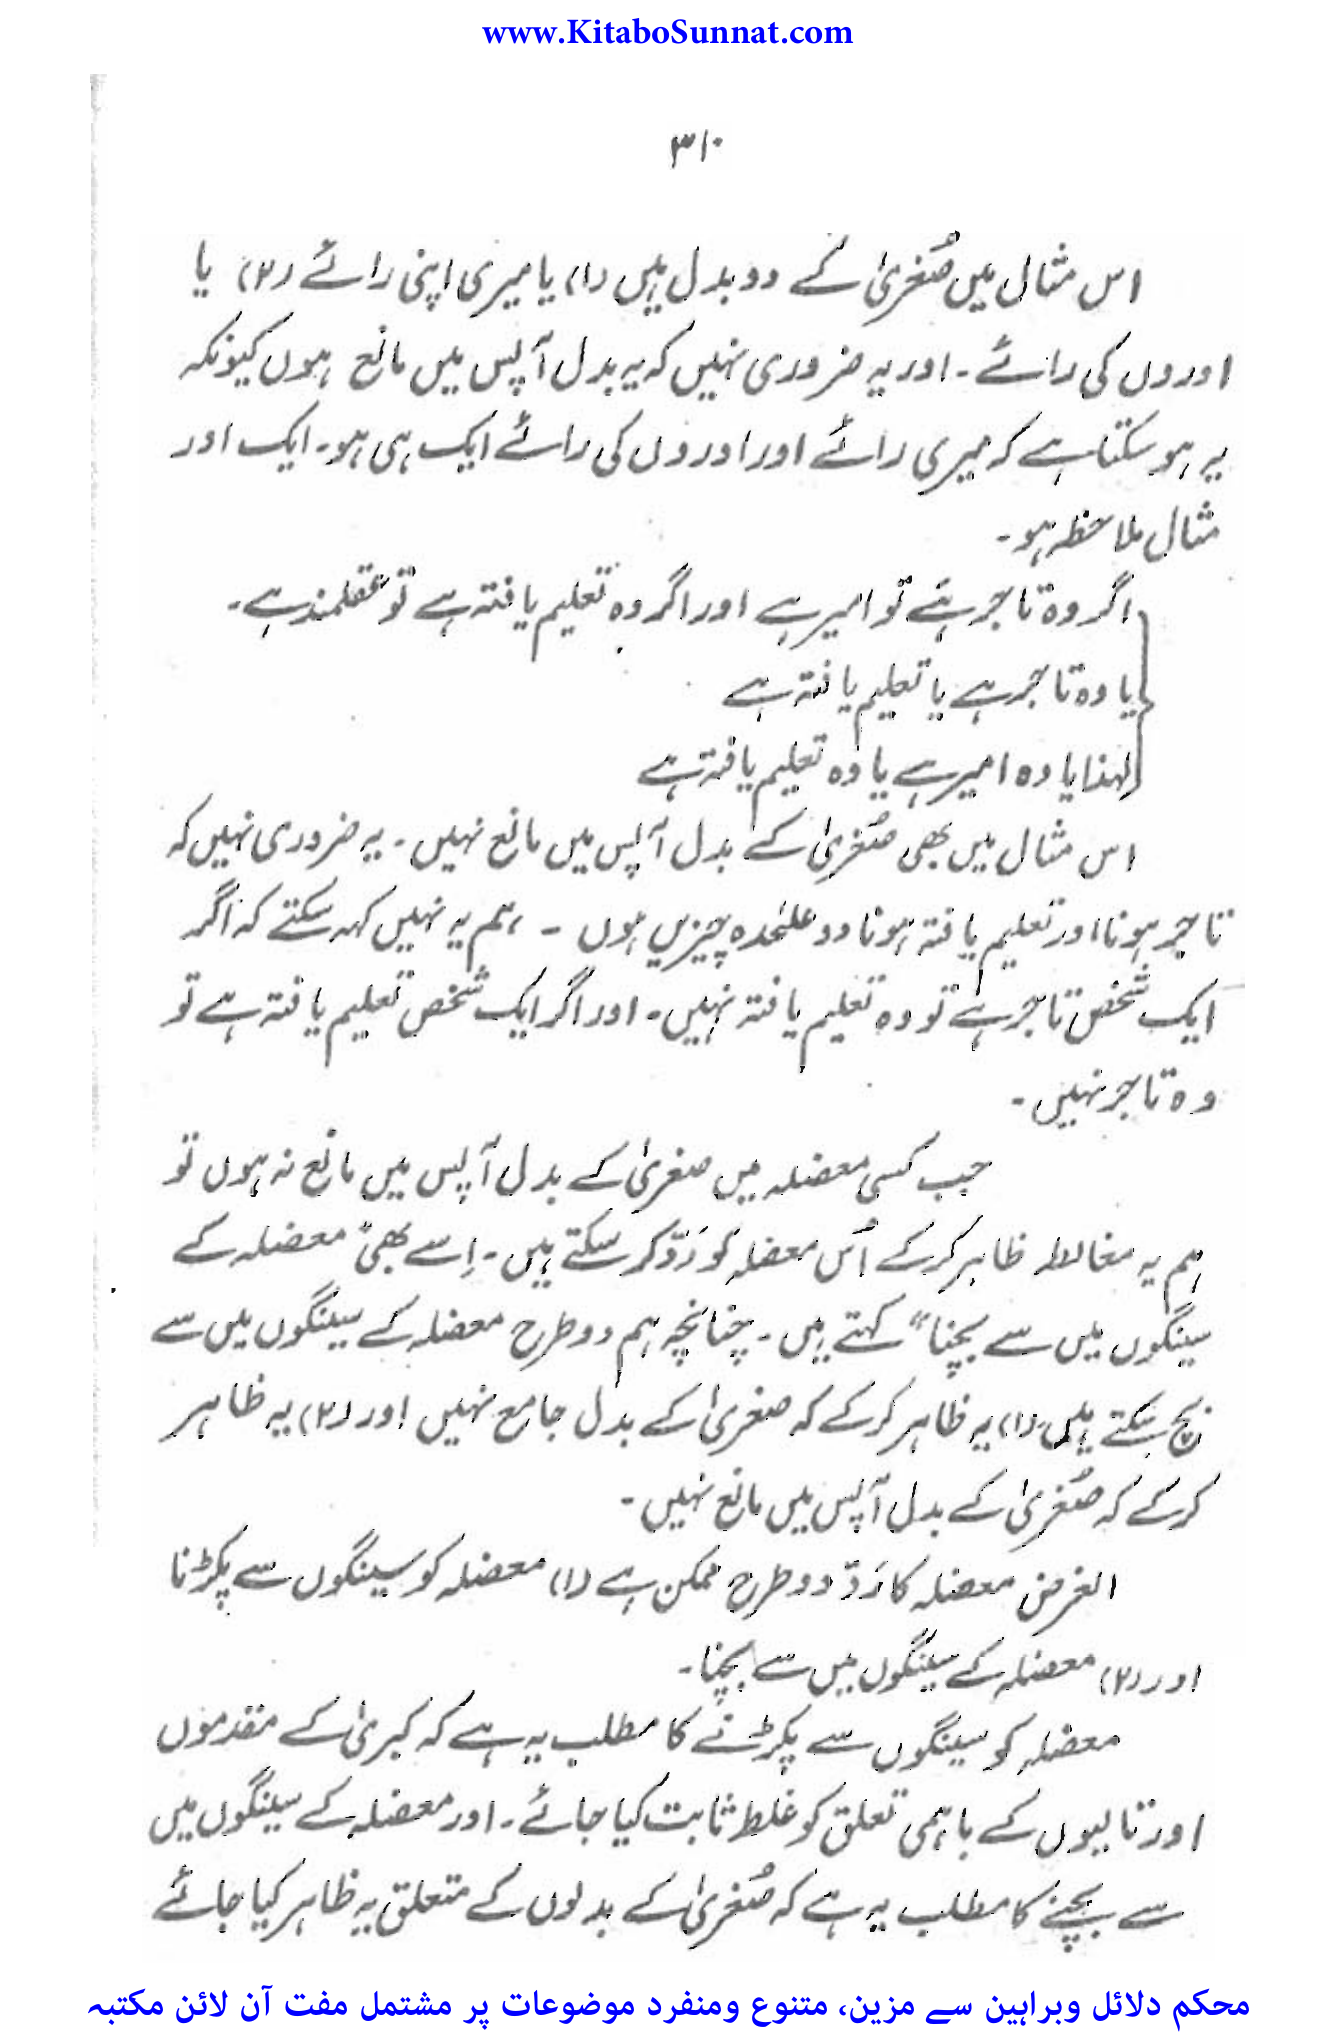 www.KitaboSunnat.com
۳۱۰
اس مثال میں صُغریٰ کے دو بدل ہیں (۱) یا میری اپنی رائے (۲) یا
اوروں کی رائے ۔ اور یہ ضروری نہیں کہ یہ بدل آپس میں مانع ہوں کیونکہ
یہ ہو سکتا ہے کہ میری رائے اور اوروں کی رائے ایک ہی ہو۔ ایک اور
مثال ملاحظہ ہو۔
اگر وہ تاجر ہے تو امیر ہے اور اگر وہ تعلیم یافتہ ہے تو عقلمند ہے۔
یا وہ تاجر ہے یا تعلیم یافتہ ہے
لہٰذا یا وہ امیر ہے یا وہ تعلیم یافتہ ہے
اس مثال میں بھی صُغریٰ کے بدل آپس میں مانع نہیں ۔ یہ ضروری نہیں کہ
تاجر ہونا اور تعلیم یافتہ ہونا دو علیٰحدہ چیزیں ہوں ۔ ہم یہ نہیں کہہ سکتے کہ اگر
ایک شخص تاجر ہے تو وہ تعلیم یافتہ نہیں۔ اور اگر ایک شخص تعلیم یافتہ ہے تو
وہ تاجر نہیں ۔
جب کسی معضلہ میں صغریٰ کے بدل آپس میں مانع نہ ہوں تو
ہم یہ مغالطہ ظاہر کر کے اُس معضلہ کو رَدّ کر سکتے ہیں ۔ اِسے بھی "معضلہ کے
سینگوں میں سے بچنا" کہتے ہیں ۔ چنانچہ ہم دو طرح معضلہ کے سینگوں میں سے
بچ سکتے ہیں (۱) یہ ظاہر کر کے کہ صغریٰ کے بدل جامع نہیں اور (۲) یہ ظاہر
کر کے کہ صُغریٰ کے بدل آپس میں مانع نہیں ۔
الغرض معضلہ کا رَدّ دو طرح ممکن ہے (۱) معضلہ کو سینگوں سے پکڑنا
اور (۲) معضلہ کے سینگوں میں سے بچنا ۔
معضلہ کو سینگوں سے پکڑنے کا مطلب یہ ہے کہ کبریٰ کے مقدموں
اور تالیوں کے باہمی تعلق کو غلط ثابت کیا جائے ۔ اور معضلہ کے سینگوں میں
سے بچنے کا مطلب یہ ہے کہ صُغریٰ کے بدلوں کے متعلق یہ ظاہر کیا جائے
محکم دلائل وبراہین سے مزین، متنوع ومنفرد موضوعات پر مشتمل مفت آن لائن مکتبہ